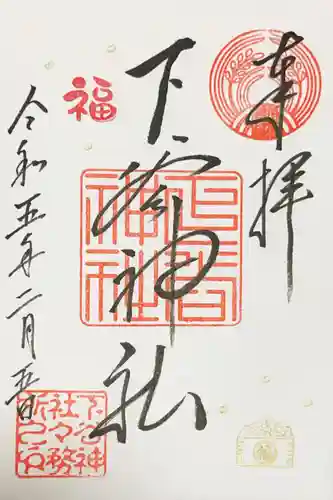 奉拝
下谷神社
福
令和五年二月五日
下谷
神社
下谷神
社々務
所之印